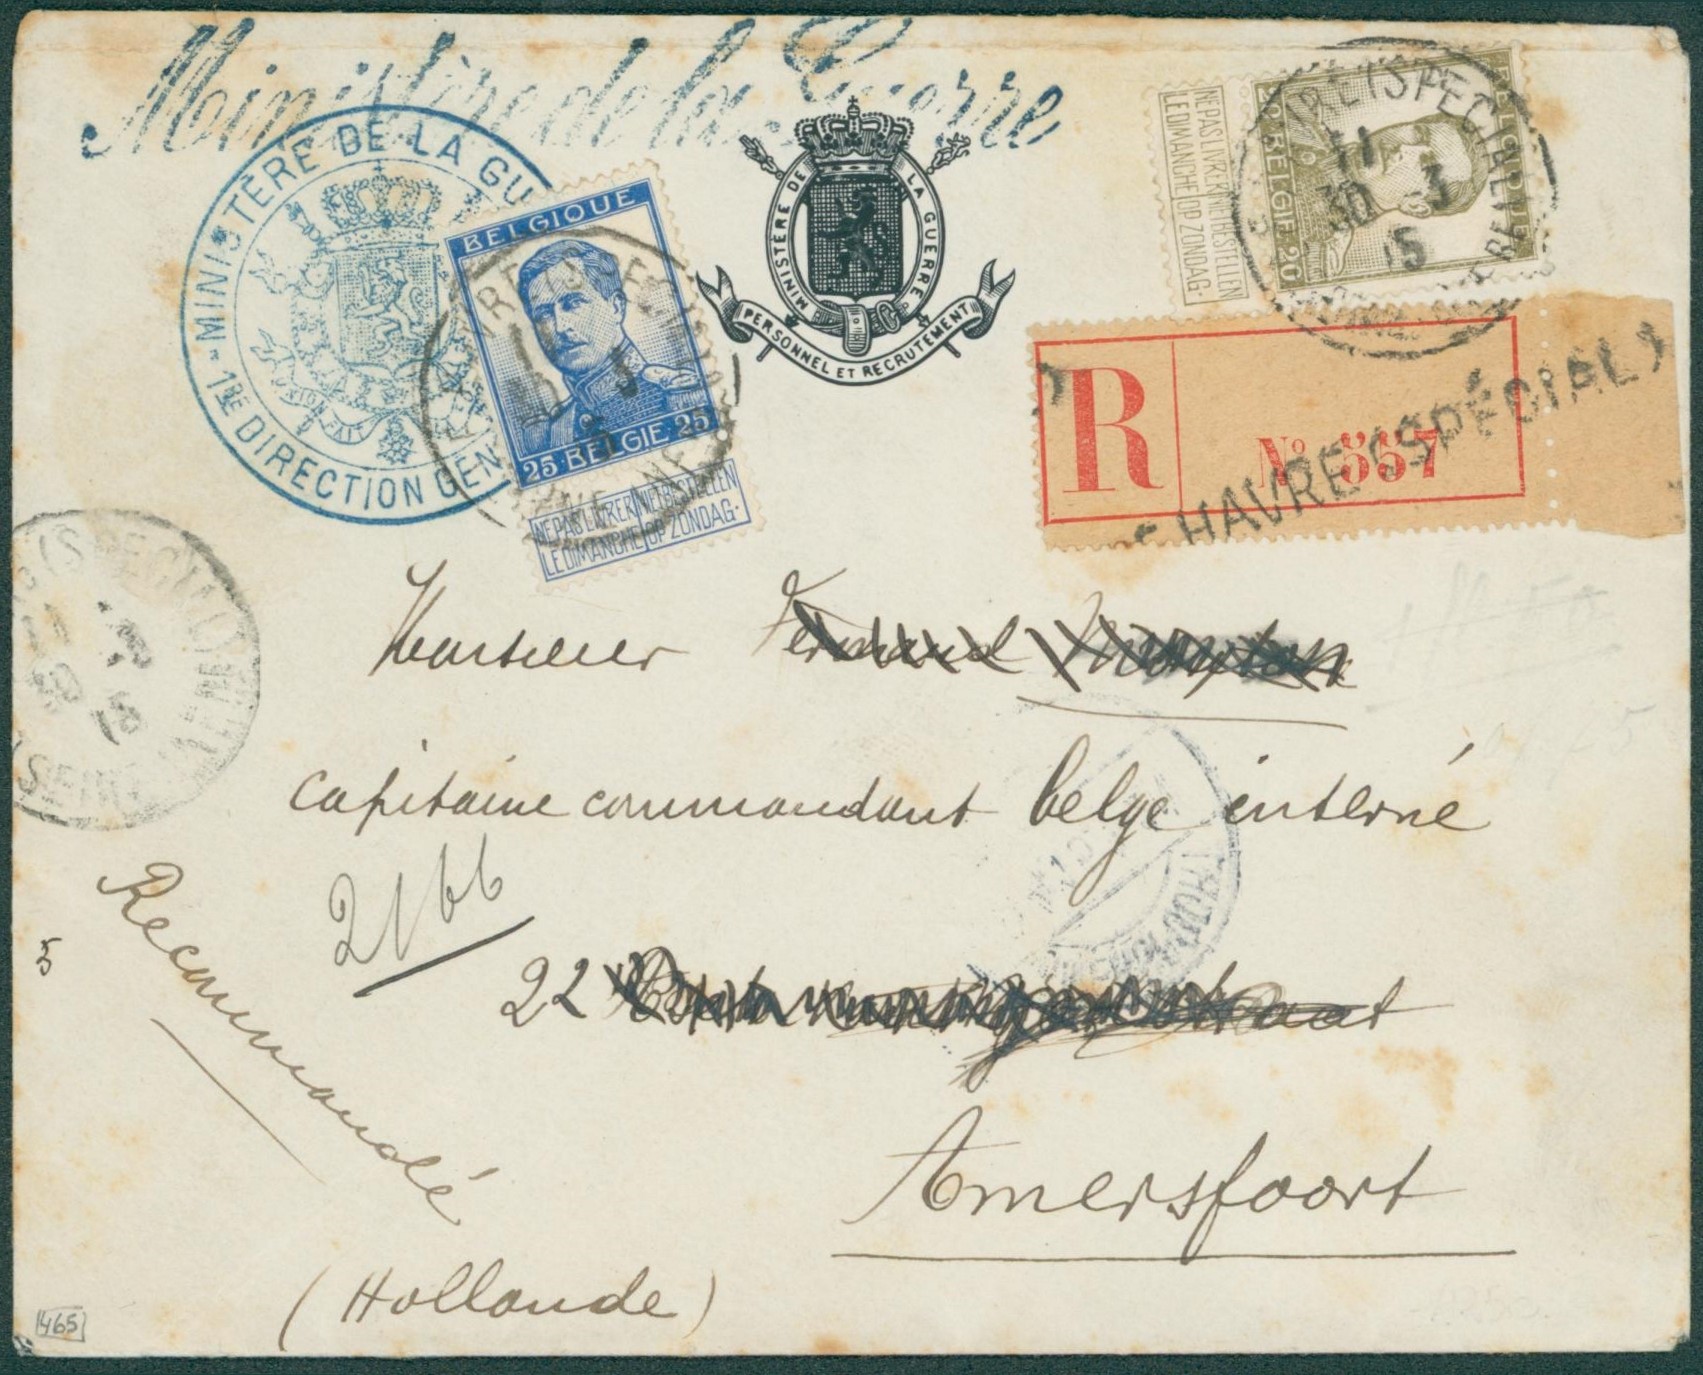 Ministère de la Guerre
MINISTÈRE DE LA GU
1RE DIRECTION GEN
FAIT
BELGIQUE
25 BELGIE 25
NE PAS LIVRER LE DIMANCHE
NIET BESTELLEN OP ZONDAG
MINISTÈRE DE LA GUERRE
PERSONNEL ET RECRUTEMENT
NE PAS LIVRER LE DIMANCHE
NIET BESTELLEN OP ZONDAG
BELGIQUE
20 BELGIE 20
RE (SPECIAL)
11
30 3
15
R
Nº 557
HAVRE (SPÉCIAL)
(SPECIAL)
11
30 3
15
SEINE
Monsieur
capitaine commandant belge interné
2166
22
Amersfoort
Recommandé
5
(Hollande)
1465